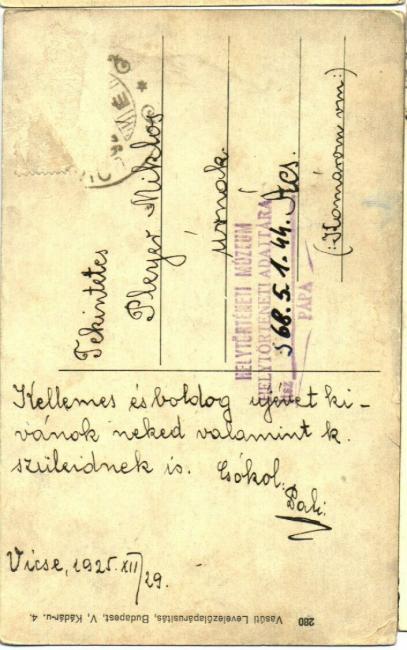 Tekintetes
Pleyer Miklós
úrnak
Ács.
(:Komárom vm:)
HELYTÖRTÉNETI MÚZEUM
HELYTÖRTÉNETI ADATTÁRA
68.5.1.-44.
PÁPA
Kellemes és boldog ujevet ki-
vánok neked valamint k.
szüleidnek is. Csókol:
Pali
Vicse, 1925. XII/29.
280 Vasúti Levelezőlapárusítás, Budapest, V, Kádár-u. 4.